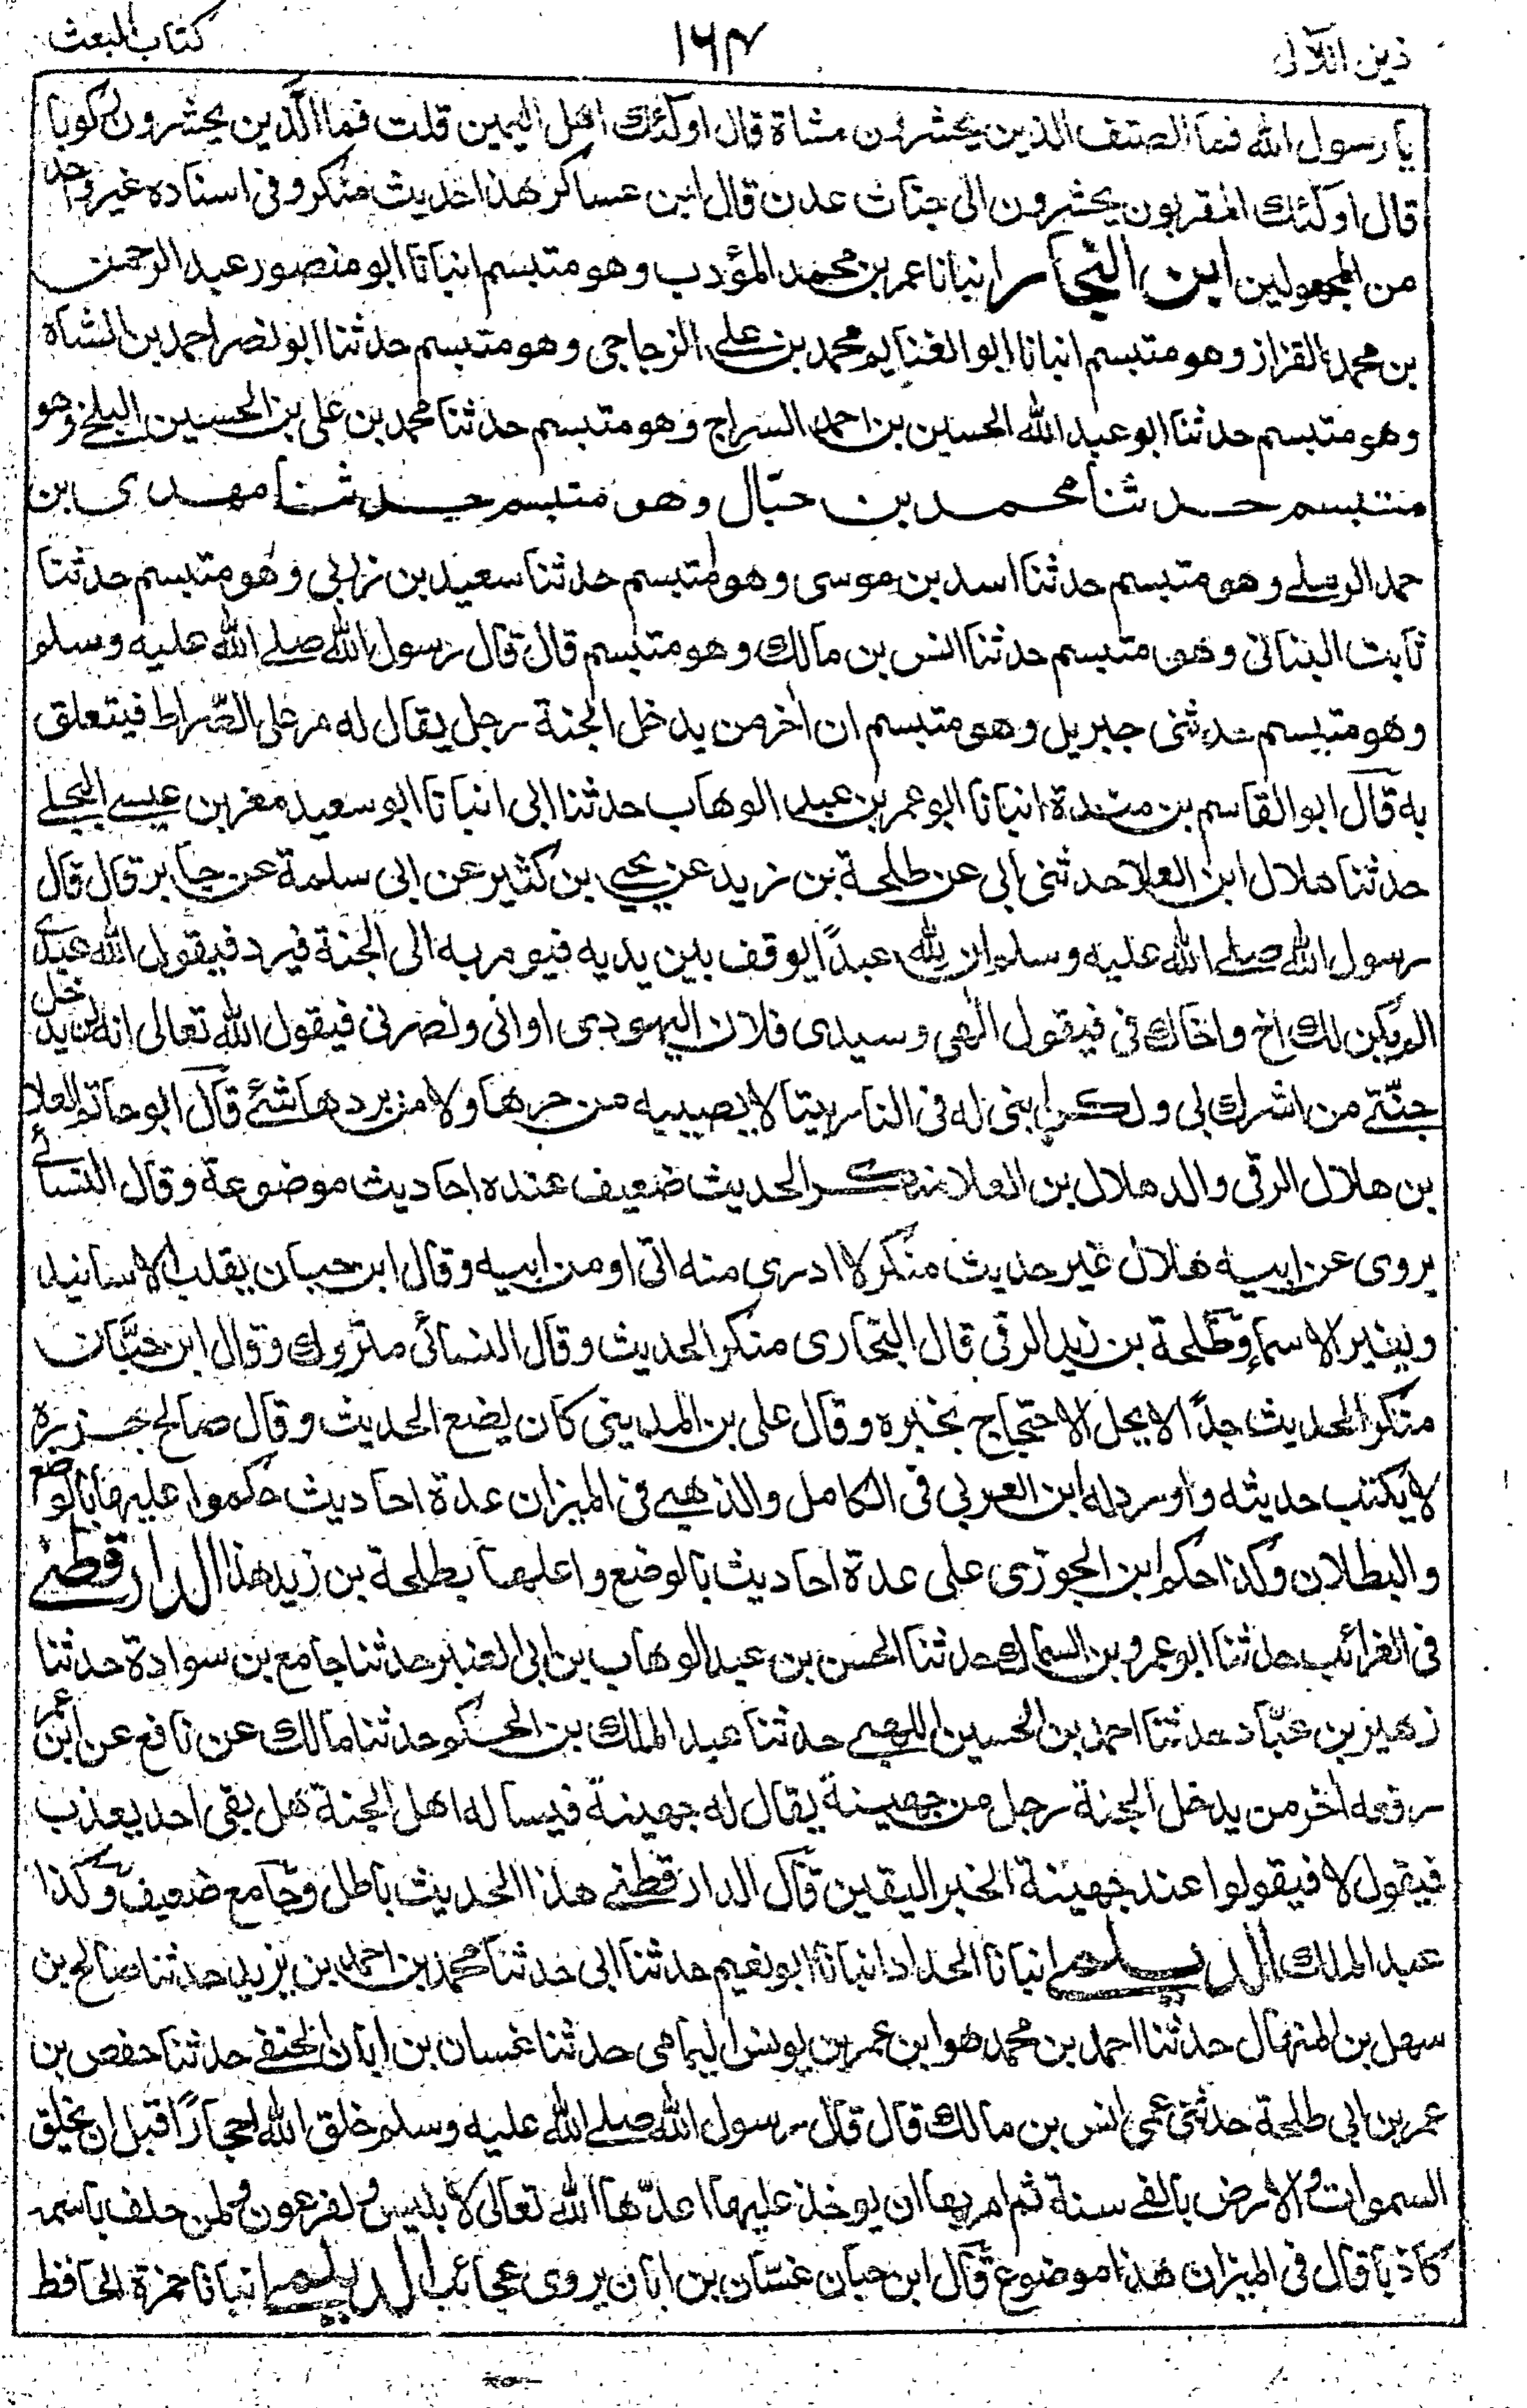 ذيل اللآلى
١٦٣
كتاب البعث
يا رسول الله فما الصنف الذين يحشرون مشاة قال اولئك اهل اليمين قلت فما الذين يحشرون ركوبا
قال اولئك المقربون يحشرون الى جنات عدن قال ابن عساكر هذا حديث منكر وفى اسناده غير واحد
من المجهولين ابن النجار انبانا عمر بن محمد المؤدب وهو متبسم انبانا ابو منصور عبد الرحمن
بن محمد القزاز وهو متبسم انبانا ابو الغنايم محمد بن على الزجاجى وهو متبسم حدثنا ابو نصر احمد بن الشاه
وهو متبسم حدثنا ابو عبد الله الحسين بن احمد السراج وهو متبسم حدثنا محمد بن على بن الحسين البلخى وهو
متبسم حدثنا محمد بن حبال وهو متبسم حدثنا مهدى بن
حمد الرملے وهو متبسم حدثنا اسد بن موسى وهو متبسم حدثنا سعيد بن زربى وهو متبسم حدثنا
ثابت البنانى وهو متبسم حدثنا انس بن مالك وهو متبسم قال قال رسول الله صلے الله عليه وسلم
وهو متبسم حدثنى جبريل وهو متبسم ان اخر من يدخل الجنة رجل يقال له مر على الصراط فيتعلق
به قال ابو القاسم بن مندة انبانا ابو عمر بن عبد الوهاب حدثنا ابى انبانا ابو سعيد معز بن عيسے البجلے
حدثنا هلال ابن العلا حدثنى ابى عن طلحة بن زيد عن يحيى بن كثير عن ابى سلمة عن جابر قال قال
رسول الله صلے الله عليه وسلم ان لله عبدًا يوقف بين يديه فيومر به الى الجنة فيرد فيقول الله عبدى
الم يكن لك اخ واخاك فى فيقول الهى وسيدى فلان اليهودى اوانى ونصرنى فيقول الله تعالى انه لن يدخل
جنتے من اشرك بى ولكن ابنى له فى النار بيتا لا يصيبه من حرها ولا من بردها شئ قال ابو حاتم العلا
بن هلال الرقى والد هلال بن العلا منكر الحديث ضعيف عنده احاديث موضوعة وقال النسائے
يروى عن ابيه هلال غير حديث منكر لا ادرى منه اتى او من ابيه وقال ابن حبان يقلب الاسانيد
ويغير الاسماء وطلحة بن زيد الرقى قال البخارى منكر الحديث وقال النسائى متروك وقال ابن حبان
منكر الحديث جدًا لا يحل الاحتجاج بخبره وقال على بن المدينى كان يضع الحديث وقال صالح جزره
لا يكتب حديثه واورد له ابن العربى فى الكامل والذهبے فى الميزان عدة احاديث حكموا عليها بالوضع
والبطلان وكذا حكم ابن الجوزى على عدة احاديث بالوضع واعلها بطلحة بن زيد هذا الدارقطنے
فى الغرائب حدثنا ابو عمرو بن السماك حدثنا الحسن بن عبد الوهاب بن ابى العنبر حدثنا جامع بن سوادة حدثنا
زهير بن عباد حدثنا احمد بن الحسين اللهبے حدثنا عبد الملك بن الحكم حدثنا مالك عن نافع عن ابن عمر
رفعه اخر من يدخل الجنة رجل من جهينة يقال له جهينة فيساله اهل الجنة هل بقى احد يعذب
فيقول لا فيقولوا عند جهينة الخبر اليقين قال الدارقطنے هذا الحديث باطل وجامع ضعيف وكذا
عبد الملك الديلمے انبانا الحداد انبانا ابو نعيم حدثنا ابى حدثنا محمد بن احمد بن يزيد حدثنا صالح بن
سهل بن المنهال حدثنا احمد بن محمد هو ابن عمر بن يونس اليمامى حدثنا غسان بن ابان الحنفے حدثنا حفص بن
عمر بن ابى طلحة حدثنى عمى انس بن مالك قال قال رسول الله صلے الله عليه وسلم خلق الله احجارًا قبل ان يخلق
السموات والارض بالفے سنة ثم امر بها ان يوخذ عليها اعدها الله تعالى لابليس ولفرعون ولمن حلف باسمه
كاذبا قال فى الميزان هذا موضوع قال ابن حبان غسان بن ابان يروى عجائب الديلمے انبانا حمزة الحافظ